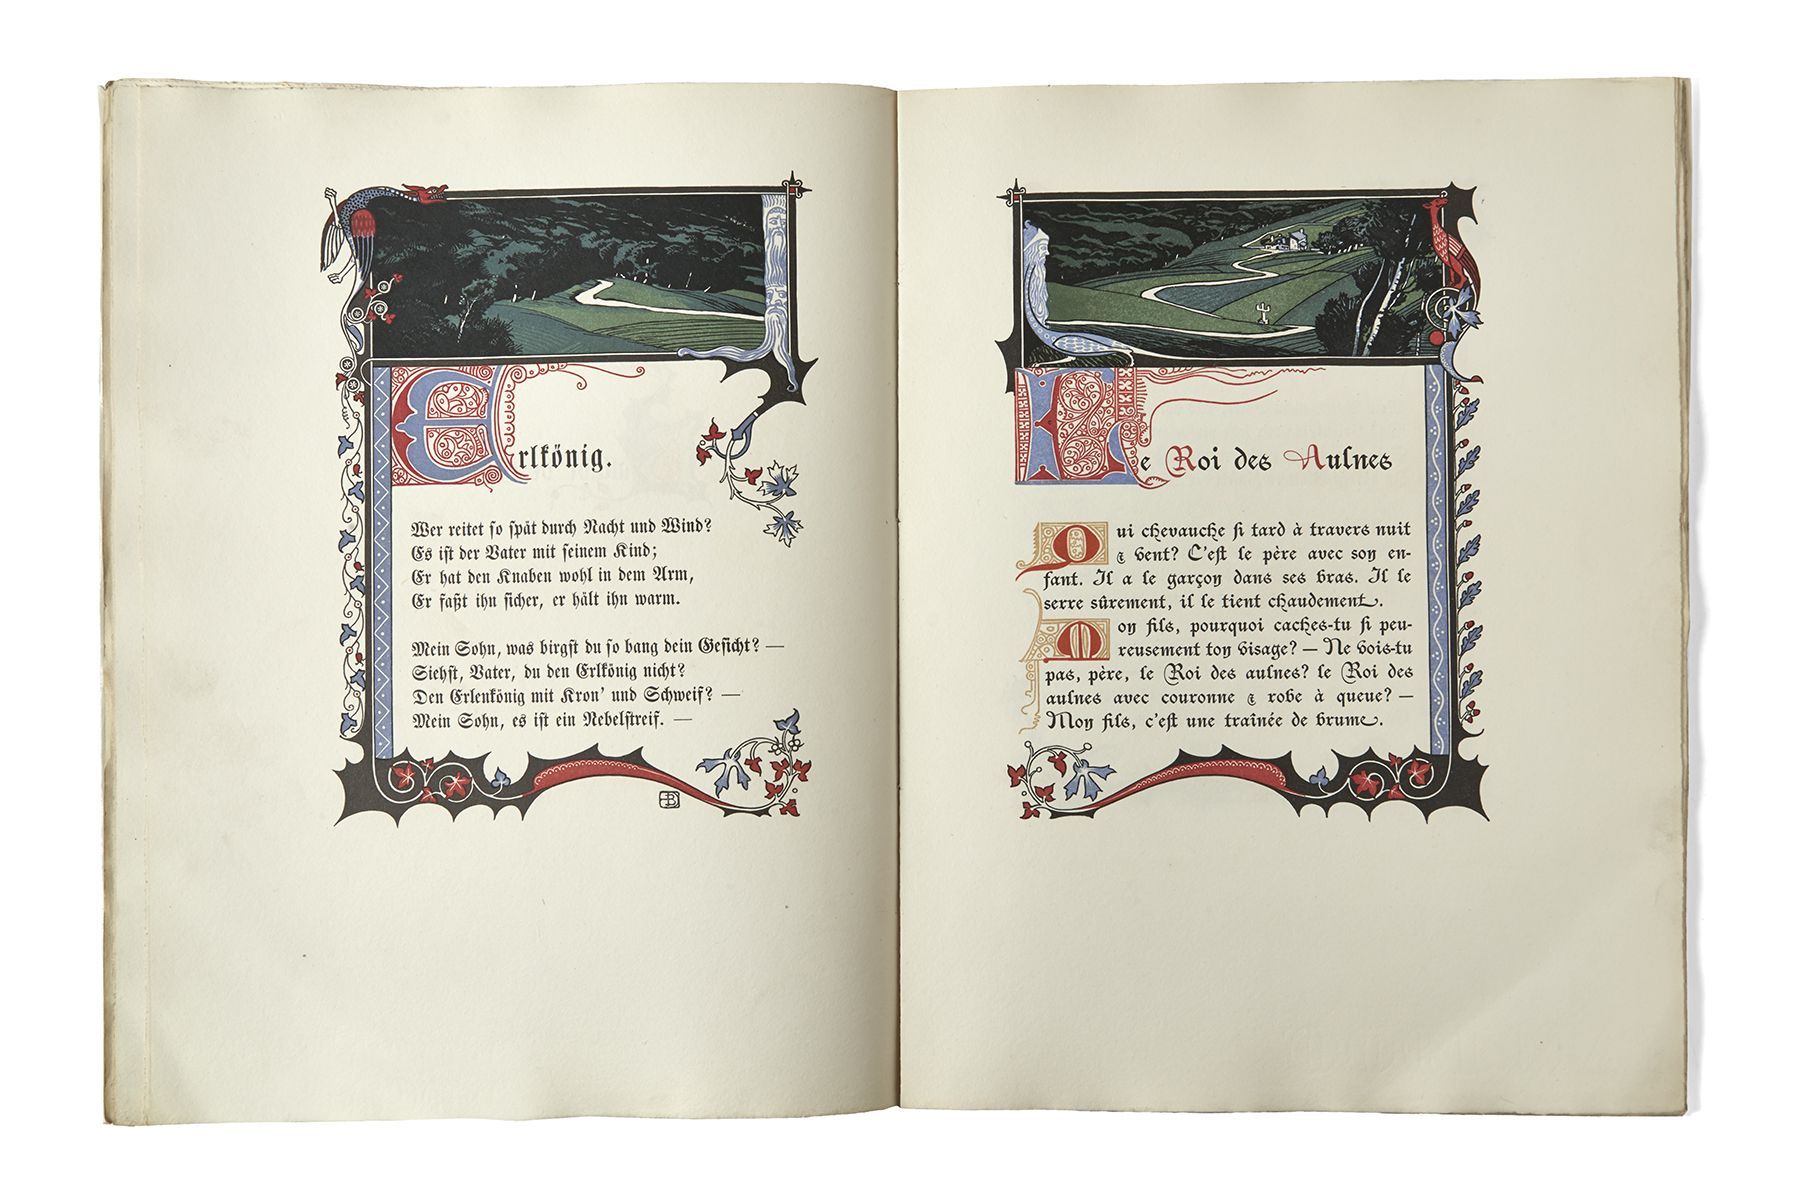 Erlkönig.
Wer reitet ſo ſpät durch Nacht und Wind?
Es iſt der Vater mit ſeinem Kind;
Er hat den Knaben wohl in dem Arm,
Er faßt ihn ſicher, er hält ihn warm.
Mein Sohn, was birgſt du ſo bang dein Geſicht? —
Siehſt, Vater, du den Erlkönig nicht?
Den Erlenkönig mit Kron' und Schweif? —
Mein Sohn, es iſt ein Nebelſtreif. —
Le Roi des Aulnes
Qui chevauche ſi tard à travers nuit
& vent? C'eſt le père avec son en-
fant. Il a le garçon dans ses bras. Il le
serre sûrement, il le tient chaudement.
Mon fils, pourquoi caches-tu ſi peu-
reusement ton visage? — Ne vois-tu
pas, père, le Roi des aulnes? le Roi des
aulnes avec couronne & robe à queue? —
Mon fils, c'eſt une traînée de brume.